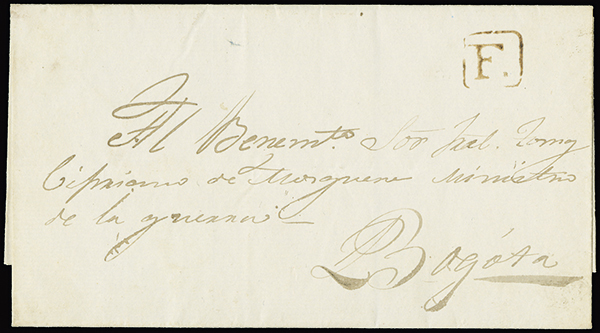 F.
Al Benemto. Sor Gral. Tomas
Cipriano de Mosquera Ministro
de la guerra
Bogóta